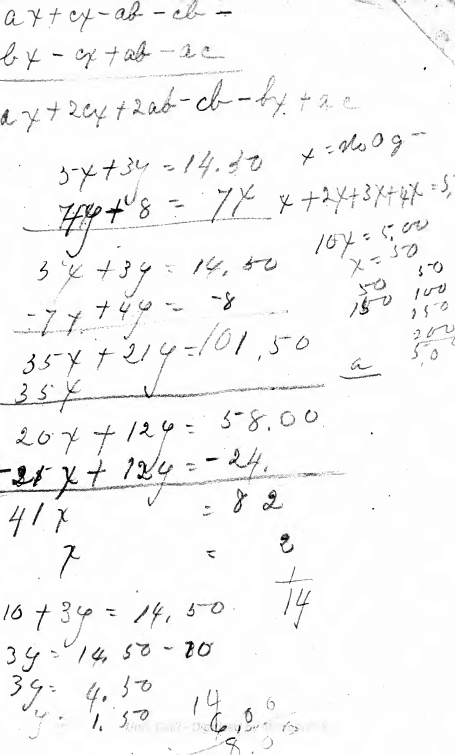 ax+cx-ab-cb-
bx-cx+ab-ac
ax+2cx+2ab-cb-bx+ac
5x+3y=14.50 x=No
4y+8 = 7x x+2x+3x+4x=5.
10x=5.00
x=50
5x+3y=14.50
50 50
150 100
-7x+4y= -8
150
200
5.0
35x+21y=101.50
a
35x
20x+12y= 58.00
-21x+12y=-24.
41x = 82
x = 2
1
14
10+3y=14.50
3y=14.50-10
3y= 4.50
y= 1.50
14
6.00
8.0